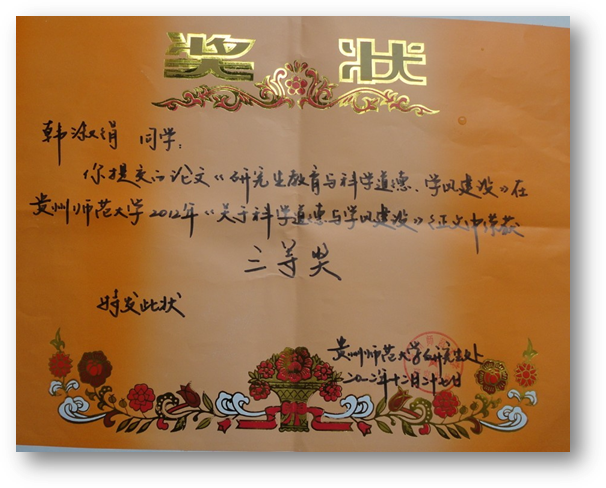 奖状
韩淑娟 同学:
你提交的论文《研究生教育与科学道德、学风建设》在
贵州师范大学2012年《关于科学道德与学风建设》征文中荣获
三等奖
特发此状
贵州师范大学研究生处
二〇一二年十二月二十七日